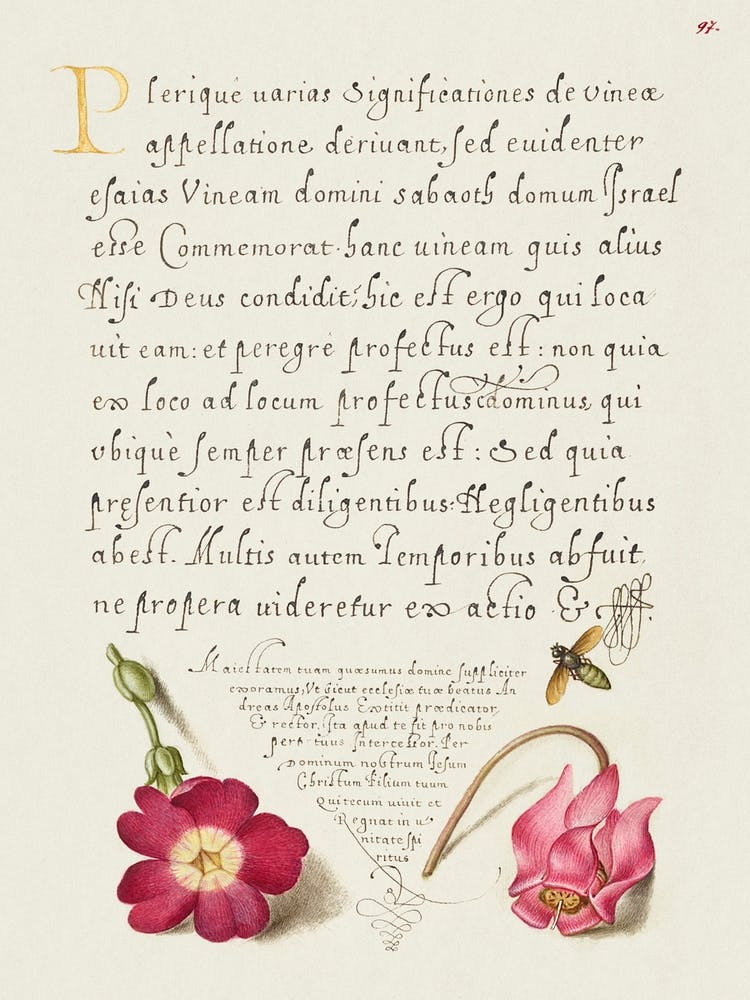 97.
Plerique uarias Significationes de vineæ
appellatione deriuant, sed euidenter
esaias Vineam domini sabaoth domum Israel
esse Commemorat. hanc uineam quis alius
Nisi Deus condidit, hic est ergo qui loca
uit eam: et peregrè profectus est: non quia
ex loco ad locum profectus dominus, qui
vbiquè semper præsens est: Sed quia
pręsentior est diligentibus: Negligentibus
abest. Multis autem Temporibus abfuit,
ne propera uideretur exactio. &
Maiestatem tuam quæsumus domine suppliciter
exoramus, Vt Sicut ecclesiæ tuæ beatus An
dreas Apostolus Extitit prædicator,
& rector, Ita apud te sit pro nobis
perpetuus Intercessor. Per
Dominum nostrum Jesum
Christum Filium tuum
Qui tecum uiuit et
Regnat in u
nitate spi
ritus